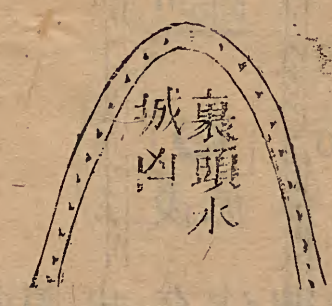 裹頭水
城凶